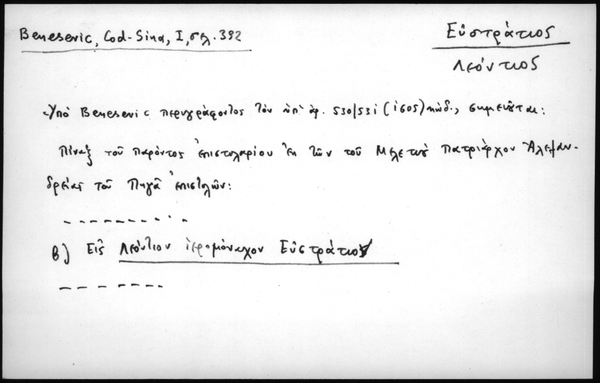 Benesevic, Cod-Sina, I, σελ. 392
Εὐστράτιος
Λεόντιος
Ὑπὸ Benesevic περιγράφοντος τὸν ὑπ' ἀρ. 530/531 (1605) κώδ., σημειοῦται:
Πίναξ τοῦ παρόντος ἐπιστολαρίου ἐκ τῶν τοῦ Μελετίου Πατριάρχου Ἀλεξαν-
δρείας τοῦ Πηγᾶ ἐπιστολῶν:
----------
β) Εἰς Λεόντιον ἱερομόναχον Εὐστράτιος
--------